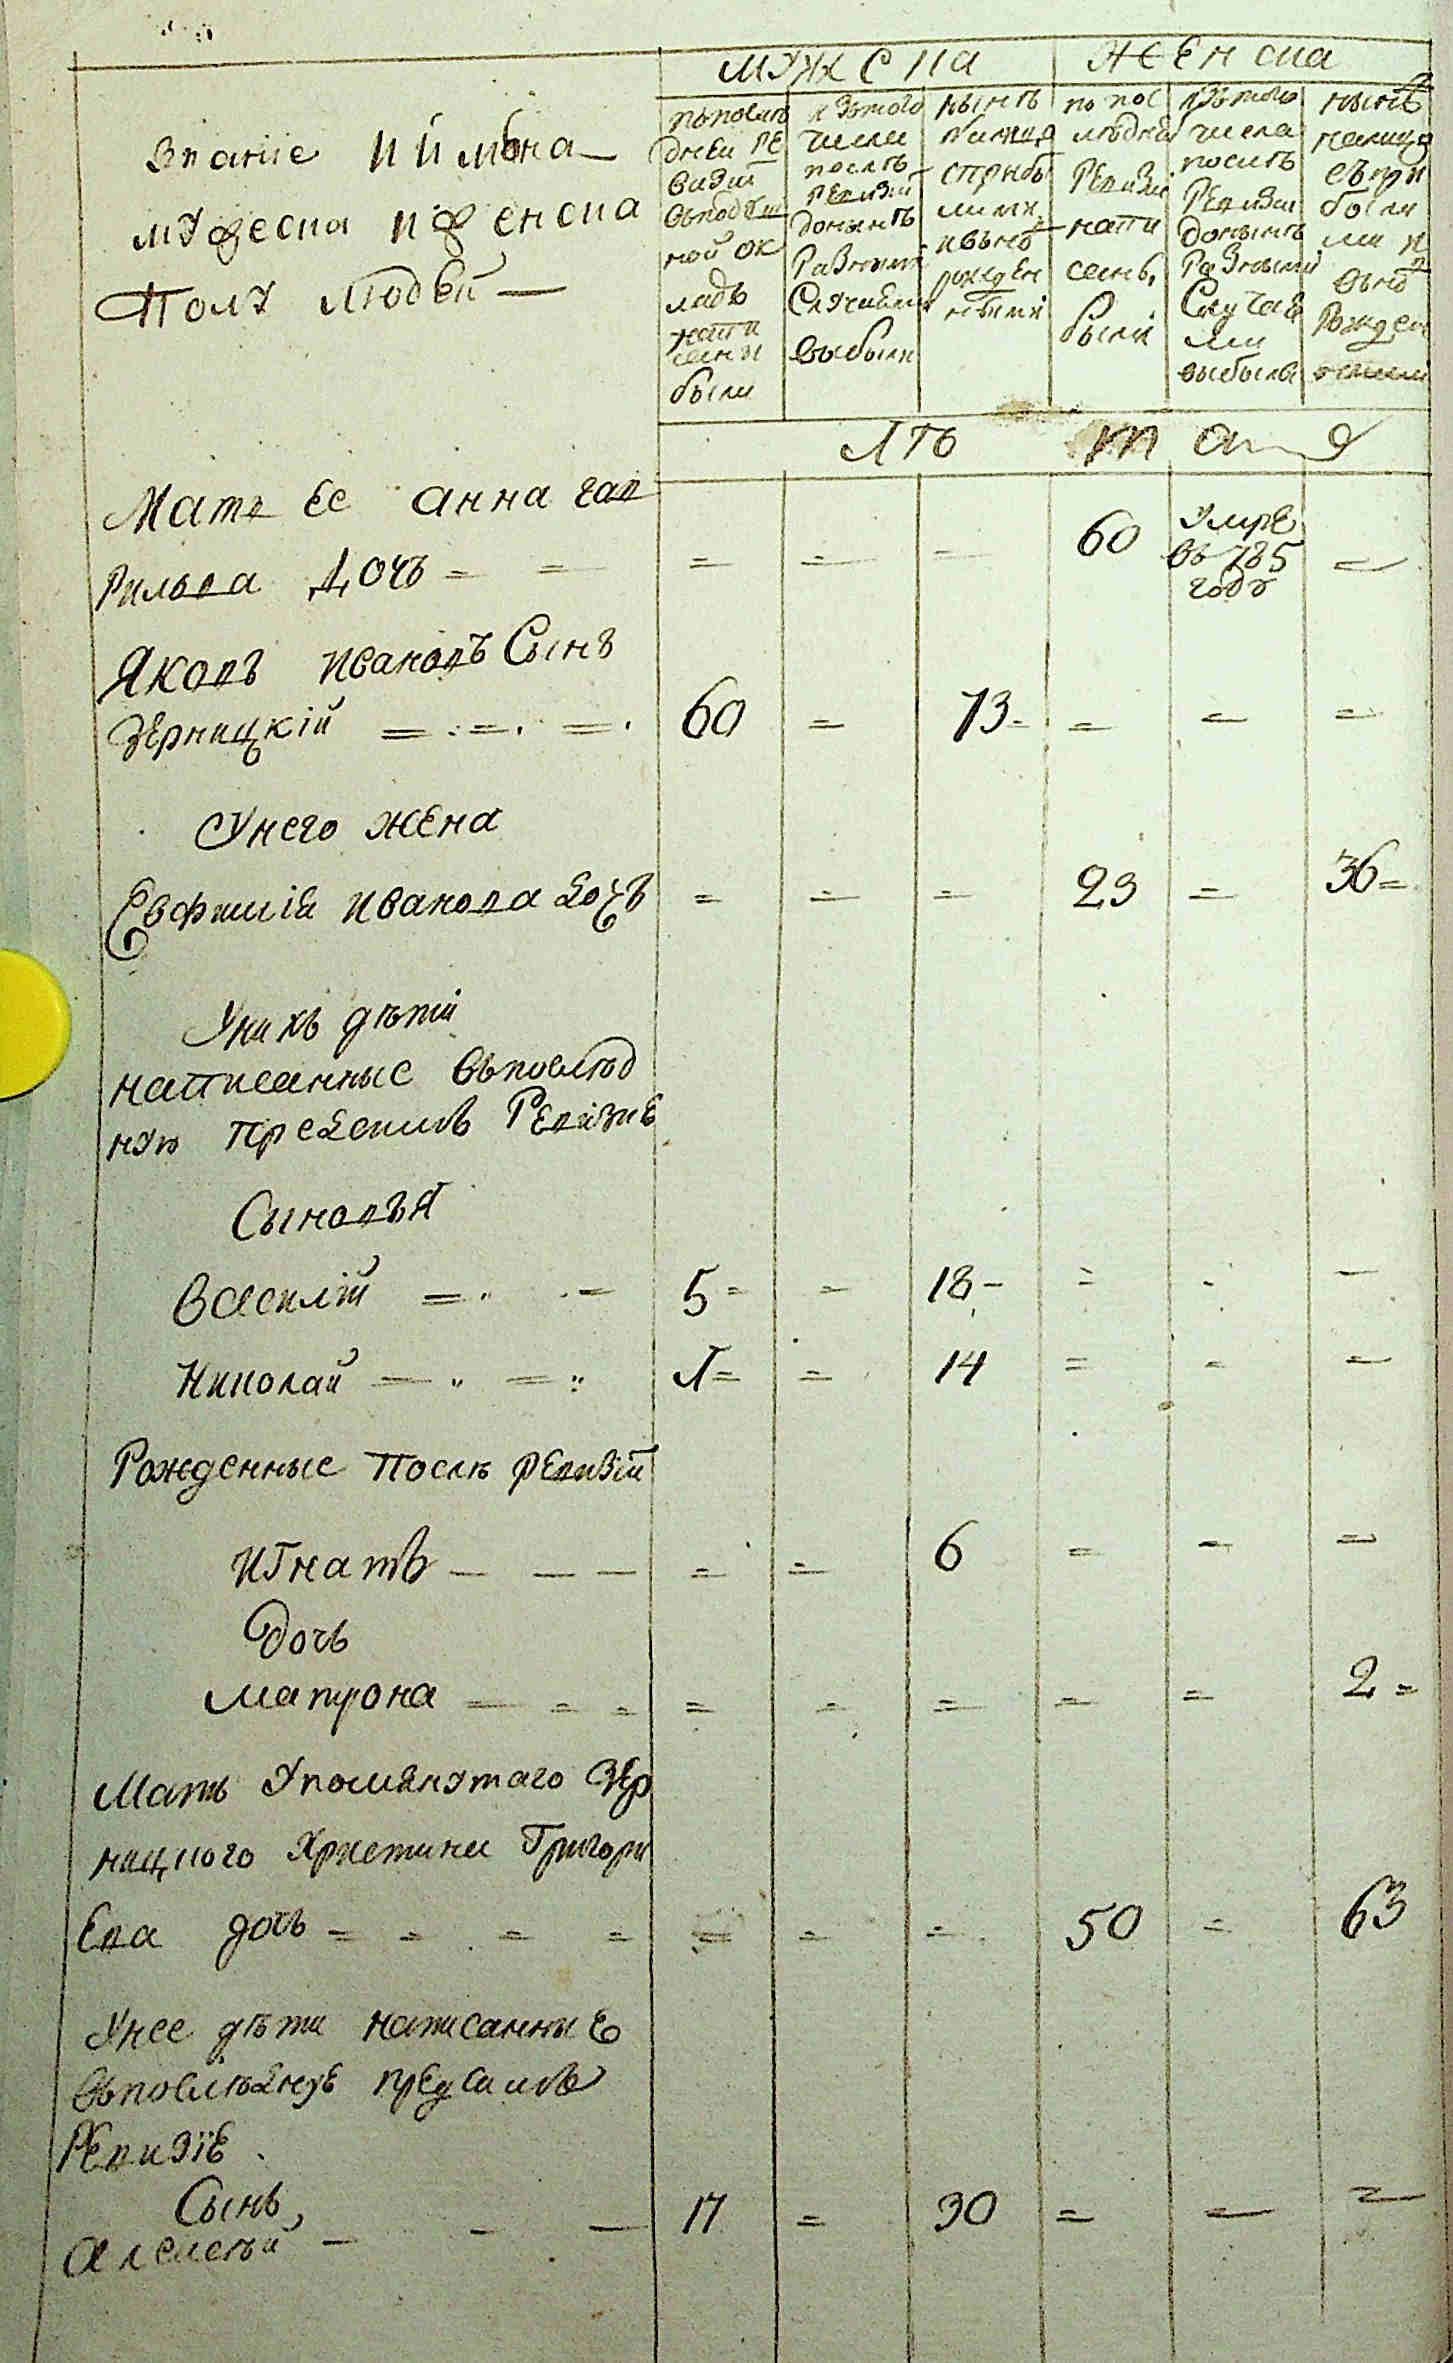 мужска
женска
Звание и имѣна
мужеска и женска
Полу людей
въпослѣ
дней ре
визии
въподуш
ной ок
ладъ
напи
санн
были
изътого
числа
послѣ
ревизии
донынѣ
разными
случаями
выбыли
нынѣ
налицо
сприбы
лыми
ивьнов
рожден
ными
по пос
лѣдней
ревизи
напи
сань,
были
изътого
числа
послѣ
ревизии
донынѣ
разными
случая
ми
выбыли
нынѣ
налицо
съпри
былы
ми и
вьнов
рожден
ными
лѣ та
Мать ее анна гав
рилова дочь
60
умре
въ 785
году
Яковъ ивановъ Сынъ
Зерницкий 60 73
Унего жена
Евфимия иванова дочь 23 36
Унихъ дѣти
написанные въпослѣд
ную предсимъ Ревизие
Сыновья
Василий 5 18
Николай 1 14
Рожденные послѣ ревизии
игнатъ 6
дочь
матрона 2
Мать упомянутаго Зер
ницкого Христина Григори
ева дочь 50 63
Унее дѣти написанные
въпослѣднуе предсимъ
Ревизие
Сынъ
алексѣй 17 30